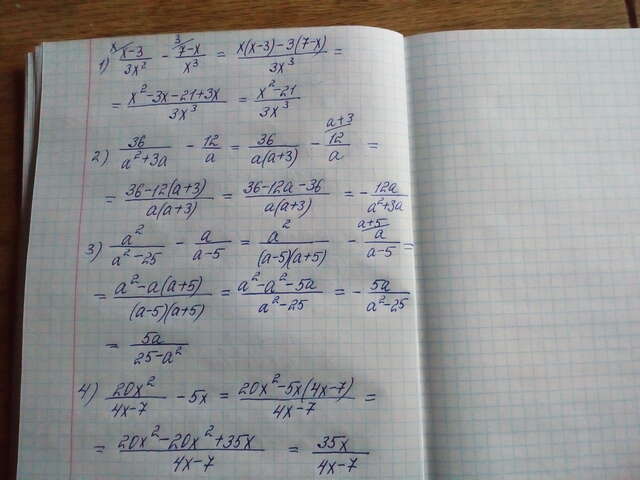 1) ˣ/(x-3)/(3x²) - ³/(7-x)/(x³) = (x(x-3)-3(7-x))/(3x³) =
= (x²-3x-21+3x)/(3x³) = (x²-21)/(3x³)
2) 36/(a²+3a) - 12/a = 36/(a(a+3)) - ᵃ⁺³/12/a =
= (36-12(a+3))/(a(a+3)) = (36-12a-36)/(a(a+3)) = -12a/(a²+3a)
3) a²/(a²-25) - a/(a-5) = a²/((a-5)(a+5)) - ᵃ⁺⁵/a/(a-5) =
= (a²-a(a+5))/((a-5)(a+5)) = (a²-a²-5a)/(a²-25) = -5a/(a²-25)
= 5a/(25-a²)
4) 20x²/(4x-7) - 5x = (20x²-5x(4x-7))/(4x-7) =
= (20x²-20x²+35x)/(4x-7) = 35x/(4x-7)